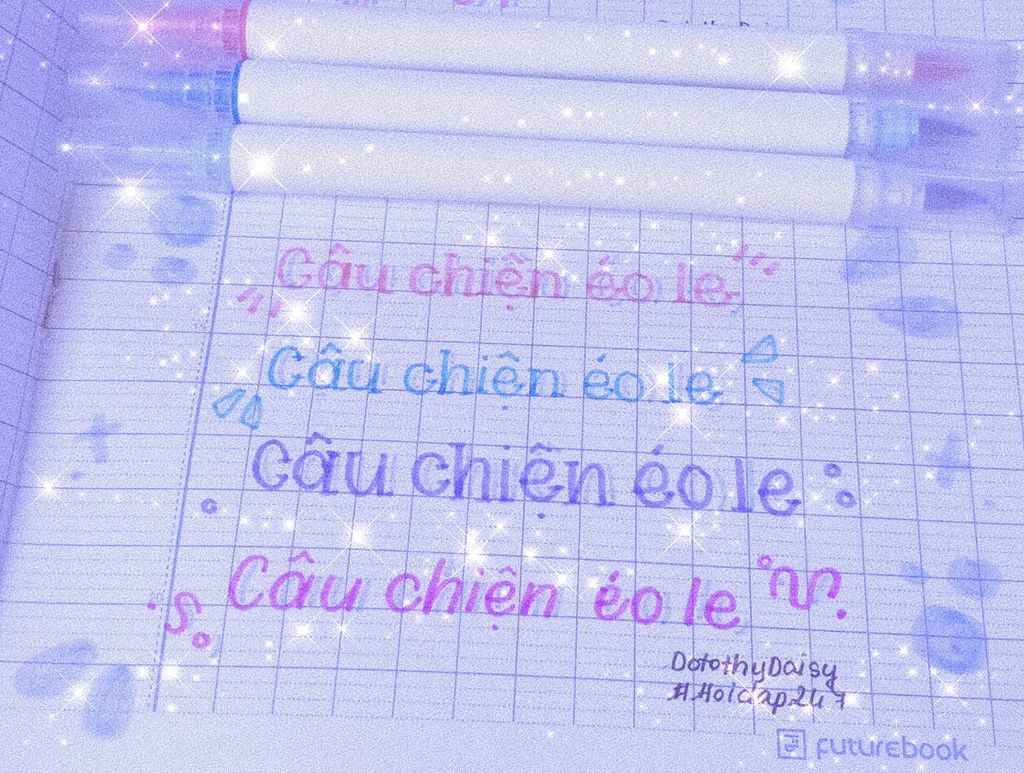 Câu chiện éo le
Câu chiện éo le
Câu chiện éo le
Câu chiện éo le
DorothyDaisy
#Hoidap247
futurebook